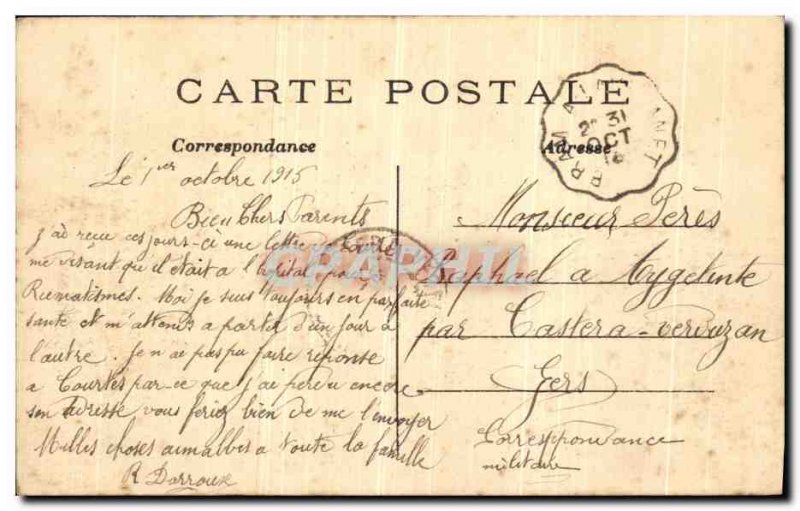 CARTE POSTALE
Correspondance
Adresse
31
OCT
Le 1er octobre 1915
Bien Chers Parents
J'ai reçu ces jours-ci une lettre
me disant qu'il était a l'opital
Rumatismes. Moi je suis toujours en parfaite
santé et m'attends a partir d'un jour a
l'autre. Je n'ai pas pu faire réponse
a Courtes par-ce que j'ai perdu encore
son adresse vous feriez bien de me l'envoyer
Milles choses aimables a toute la famille
R Darroux
Monsieur Perès
Raphael a Aygetinte
par Castera-verduzan
Gers
Correspondance
militaire
CPAPHIL